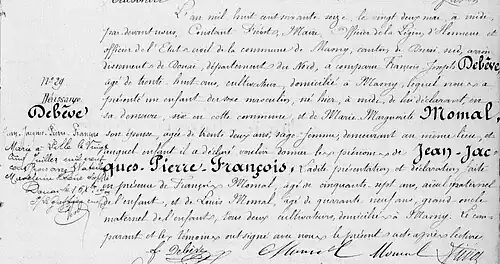 L'an mil huit cent soixante seize, le vingt deux mai, à midi
par devant nous, Constant Fiévet, Maire, Officier de la Légion d'Honneur et
officier de l'Etat civil de la commune de Masny, canton de Douai sud, arron
dissement de Douai, département du Nord, a comparu François Joseph Debève
âgé de trente huit ans, cultivateur, domicilié à Masny, lequel nous a
présenté un enfant du sexe masculin, né hier, à midi, de lui déclarant, en
sa demeure, sise en cette commune, et de Marie Marguerite Momal,
son épouse, âgée de trente deux ans, sage femme, demeurant au même lieu, et
auquel enfant il a déclaré vouloir donner les prénoms de Jean-Jac
ques-Pierre-François, Lesdites présentation et déclaration faites
en présence de François Momal, âgé de cinquante sept ans, aïeul paternel
de l'enfant, et de Louis Momal, âgé de quarante neuf ans, grand oncle
maternel de l'enfant, tous deux cultivateurs, domiciliés à Masny. Le com
parant et les témoins ont signé avec nous le présent acte après lecture
f. Debève Momal Momal
N° 29
Naissance
Debève
Jean Jacques Pierre François